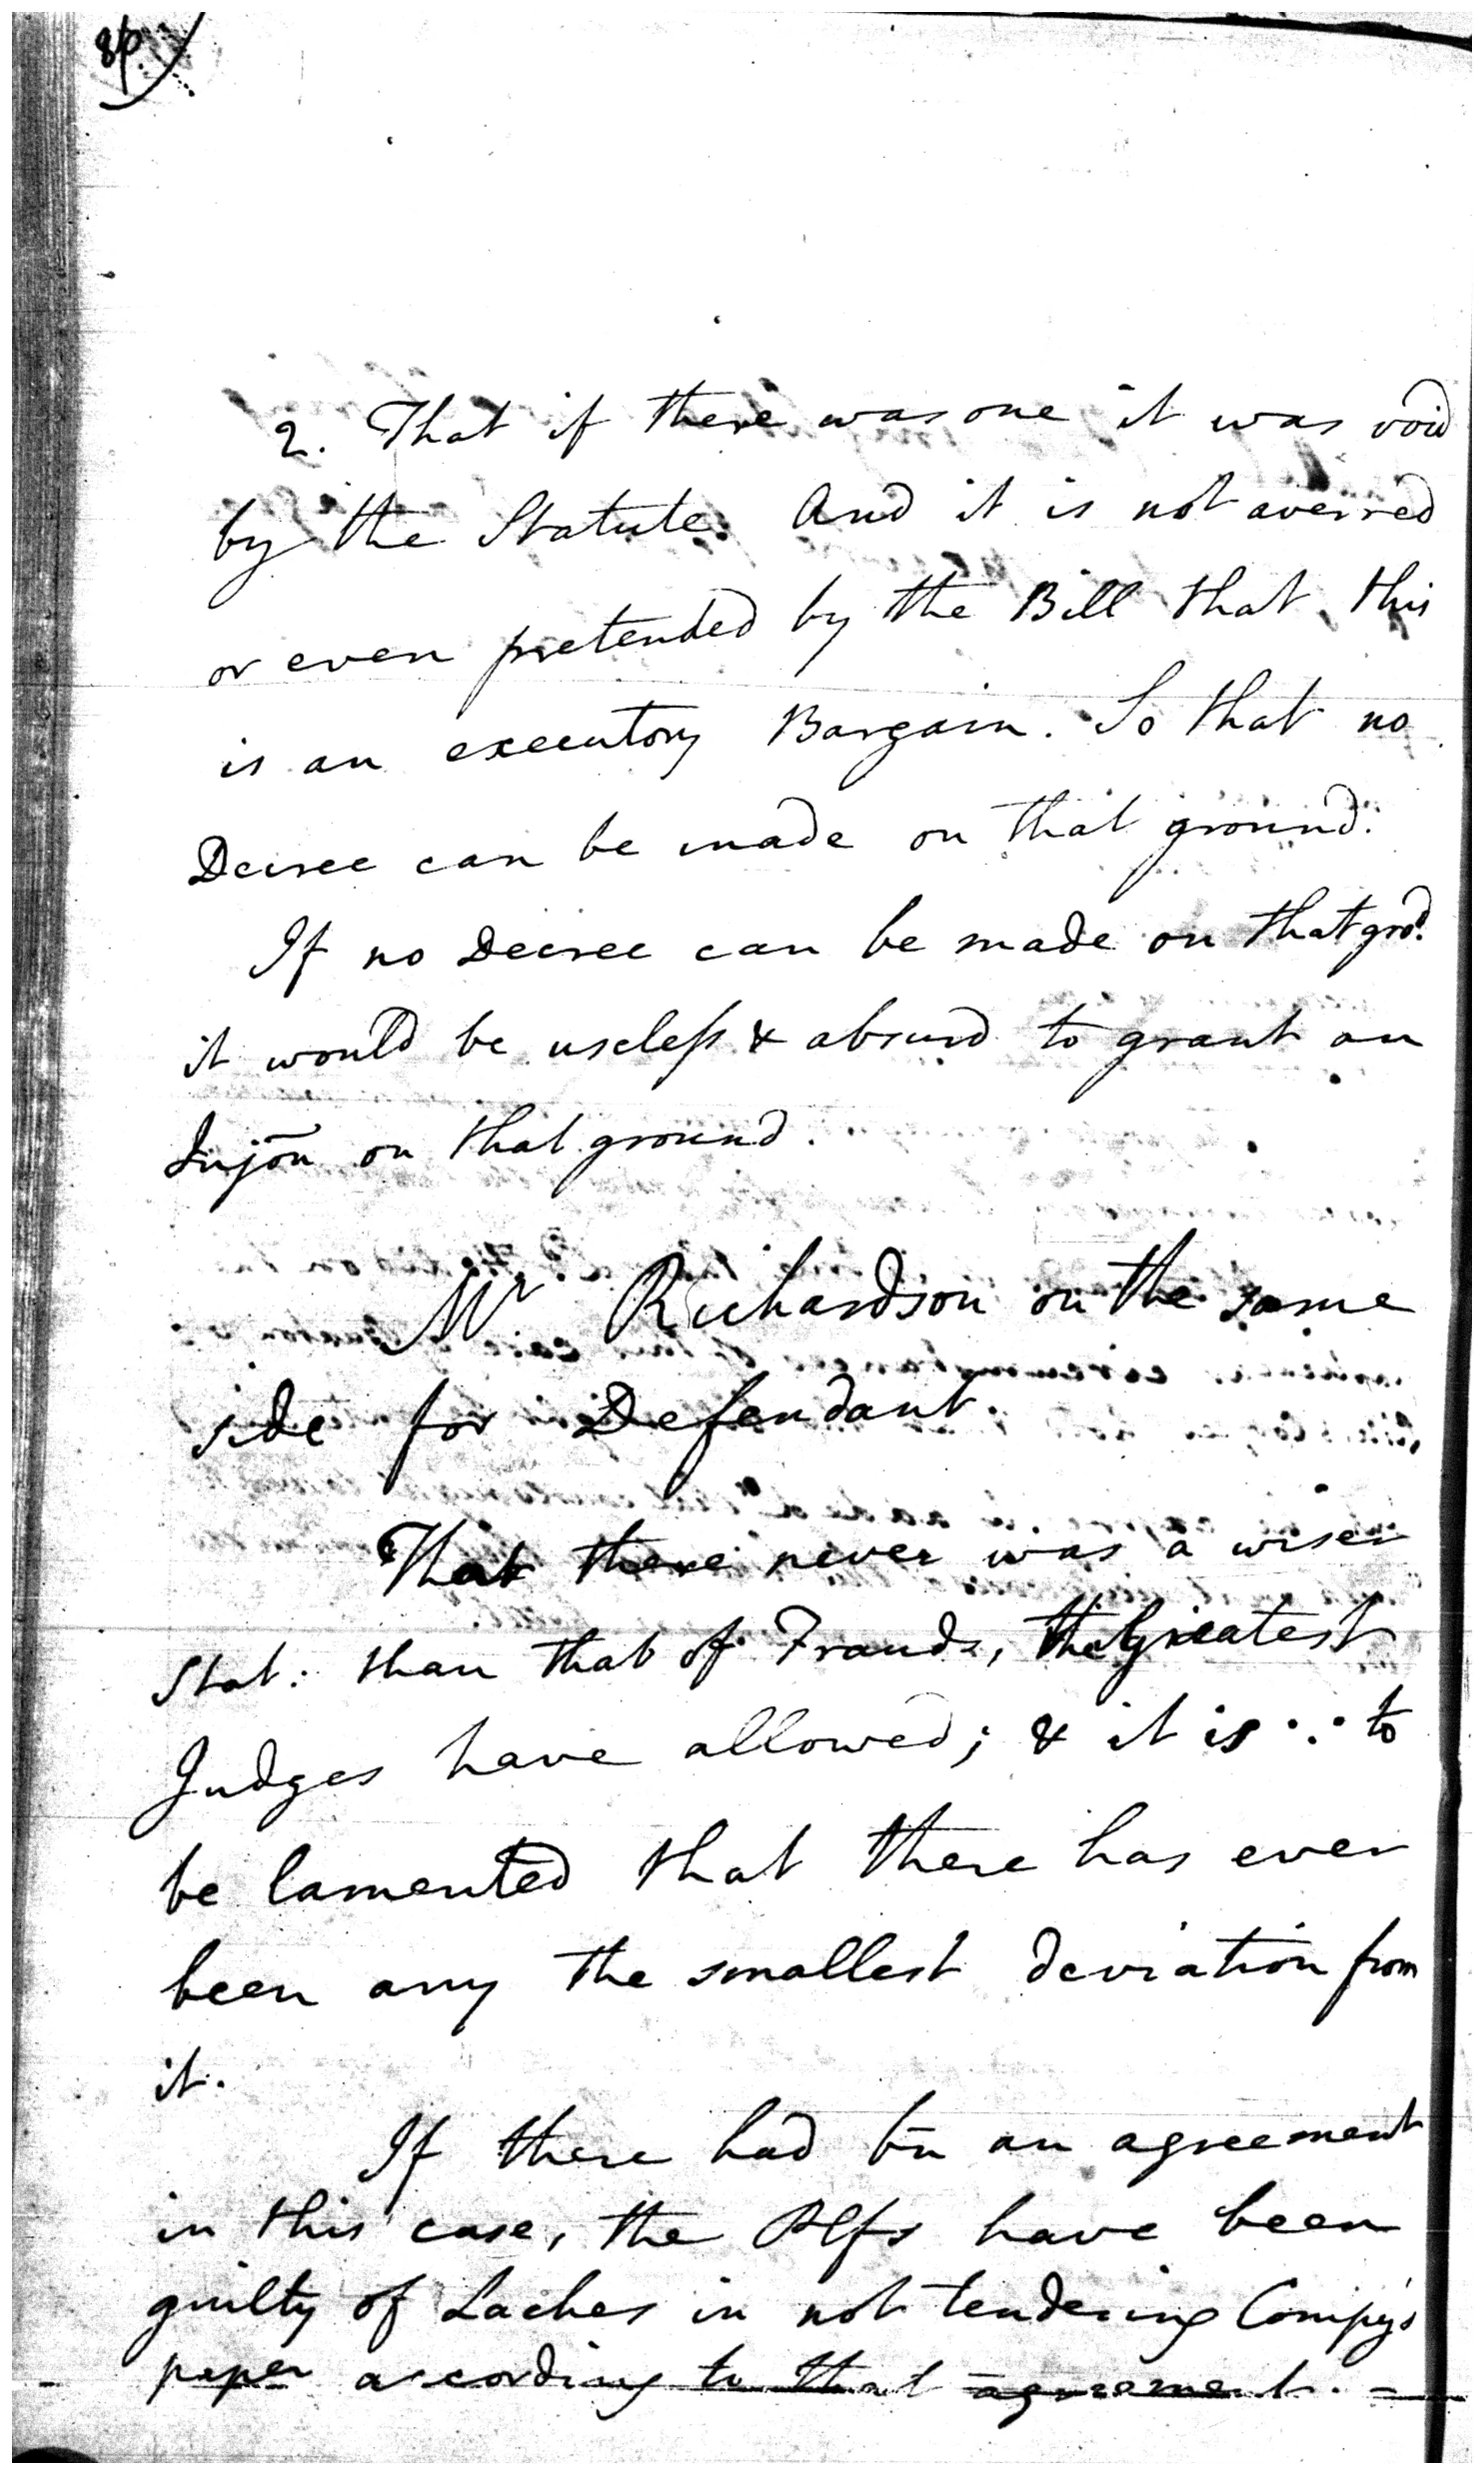 2. That if there was one it was void
by the Statute. And it is not averred
or even pretended by the Bill that, this
is an executory Bargain. So that no
Decree can be made on that ground.
If no Decree can be made on that grod.
it would be useless & absurd to grant an
Injōn on that ground.
Mr Richardson on the same
side for Defendant.
That there never was a wiser
Stat: than that of Frauds, the Greatest
Judges have allowed; & it is ∴ to
be lamented that there has ever
been any the smallest deviation from
it.
If there had bn̄ an agreement
in this case, the Plfs have been
guilty of Laches in not tendering Compy's
paper according to that agreement. —